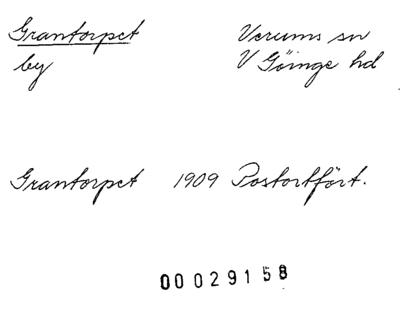 Grantorpet Verums sn
by V Göinge hd
Grantorpet 1909 Postortfört.
00029158